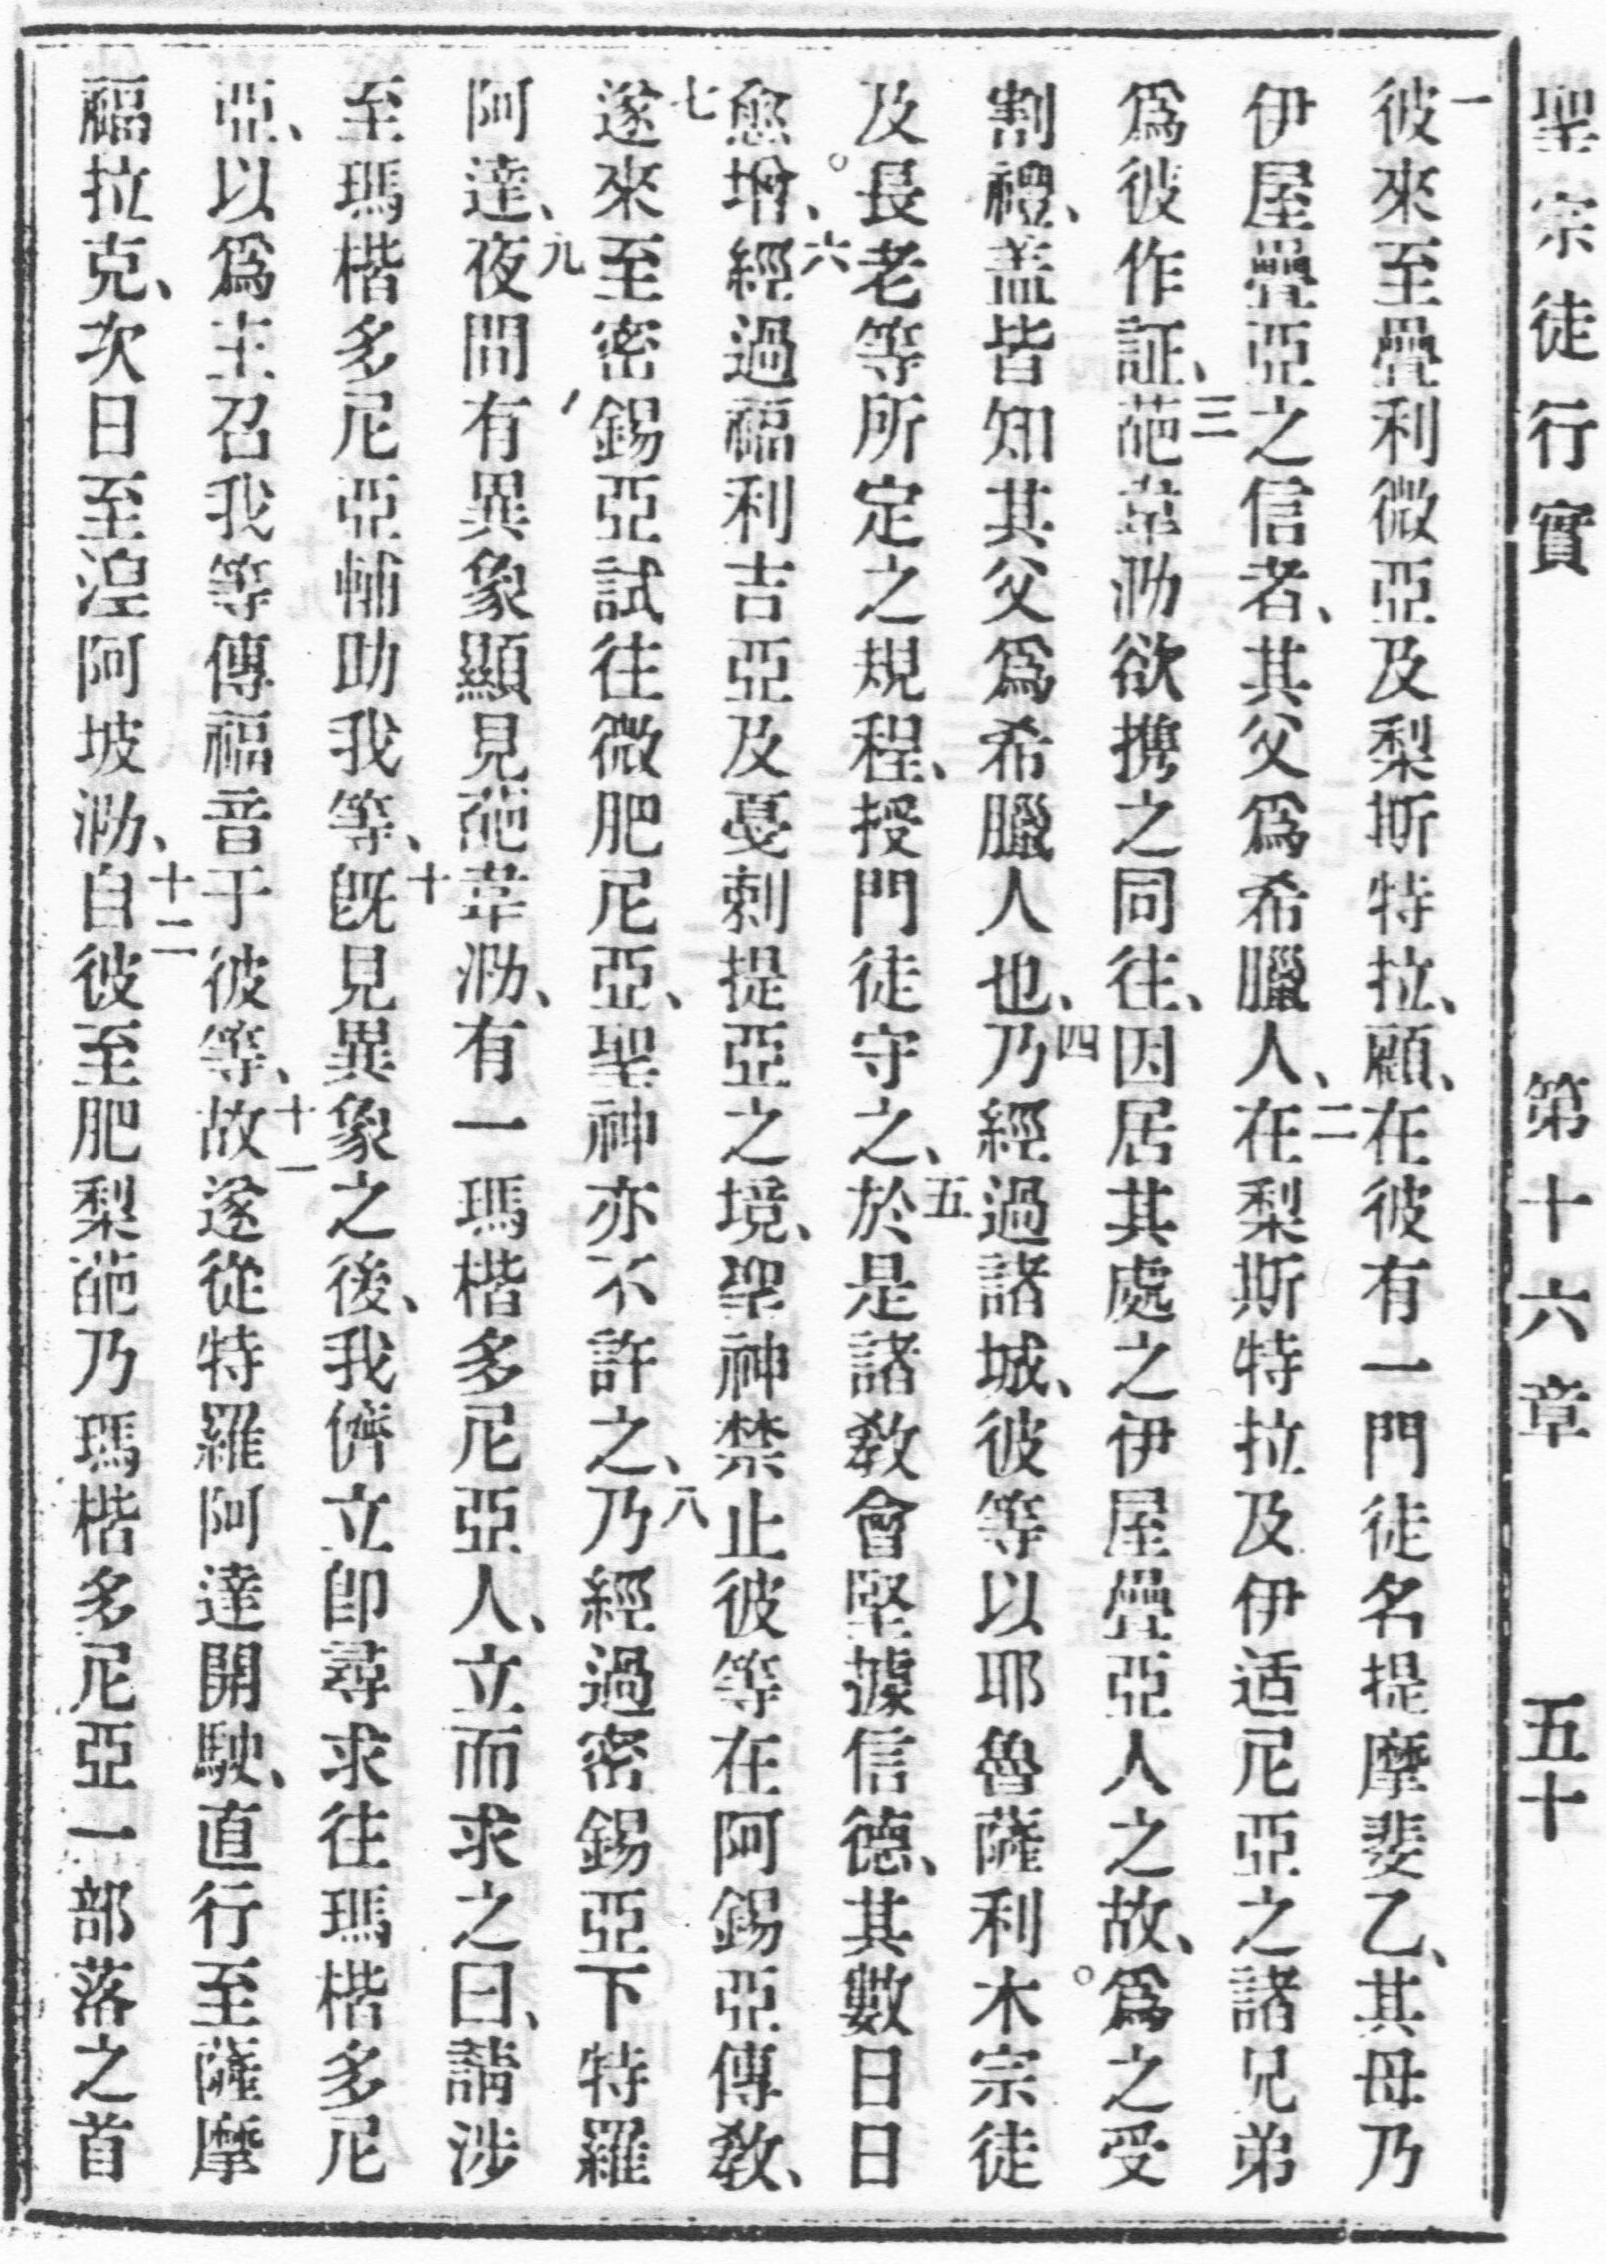 聖宗徒行實 第十六章 五十
一彼來至疊利微亞及梨斯特拉、顧、在彼有一門徒名提摩斐乙、其母乃
伊屋疊亞之信者、其父爲希臘人、二在梨斯特拉及伊适尼亞之諸兄弟
爲彼作証、三葩韋泐欲携之同往、因居其處之伊屋疊亞人之故、爲之受
割禮、盖皆知其父爲希臘人也、四乃經過諸城、彼等以耶魯薩利木宗徒
及長老等所定之規程、授門徒守之、五於是諸敎會堅據信德、其數日日
愈增、六經過福利吉亞及戞剌提亞之境、聖神禁止彼等在阿錫亞傳敎、
七遂來至密錫亞試往微肥尼亞、聖神亦不許之、八乃經過密錫亞下特羅
阿達、九夜間有異象顯見葩韋泐、有一瑪楷多尼亞人、立而求之曰、請涉
至瑪楷多尼亞輔助我等、十旣見異象之後、我儕立卽尋求往瑪楷多尼
亞、以爲主召我等傳福音于彼等、十一故遂從特羅阿達開駛、直行至薩摩
福拉克、次日至湼阿坡泐、十二自彼至肥梨葩乃瑪楷多尼亞一部落之首